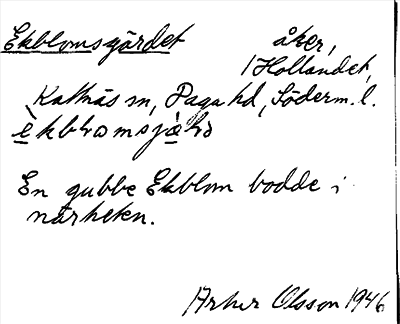 Ekblomsgärdet åker,
i Hollandet,
Kattnäs sn, Daga hd, Söderm. l.
En gubbe Ekblom bodde i
närheten.
Artur Olsson 1946